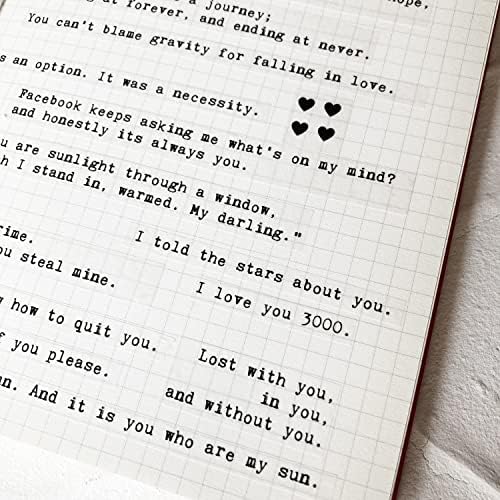 a journey;
hope,
at forever, and ending at never.
You can't blame gravity for falling in love.
an option. It was a necessity.
Facebook keeps asking me what's on my mind?
and honestly its always you.
are sunlight through a window,
I stand in, warmed. My darling."
I told the stars about you.
steal mine.
I love you 3000.
how to quit you.
you please.
Lost with you,
in you,
and without you.
And it is you who are my sun.